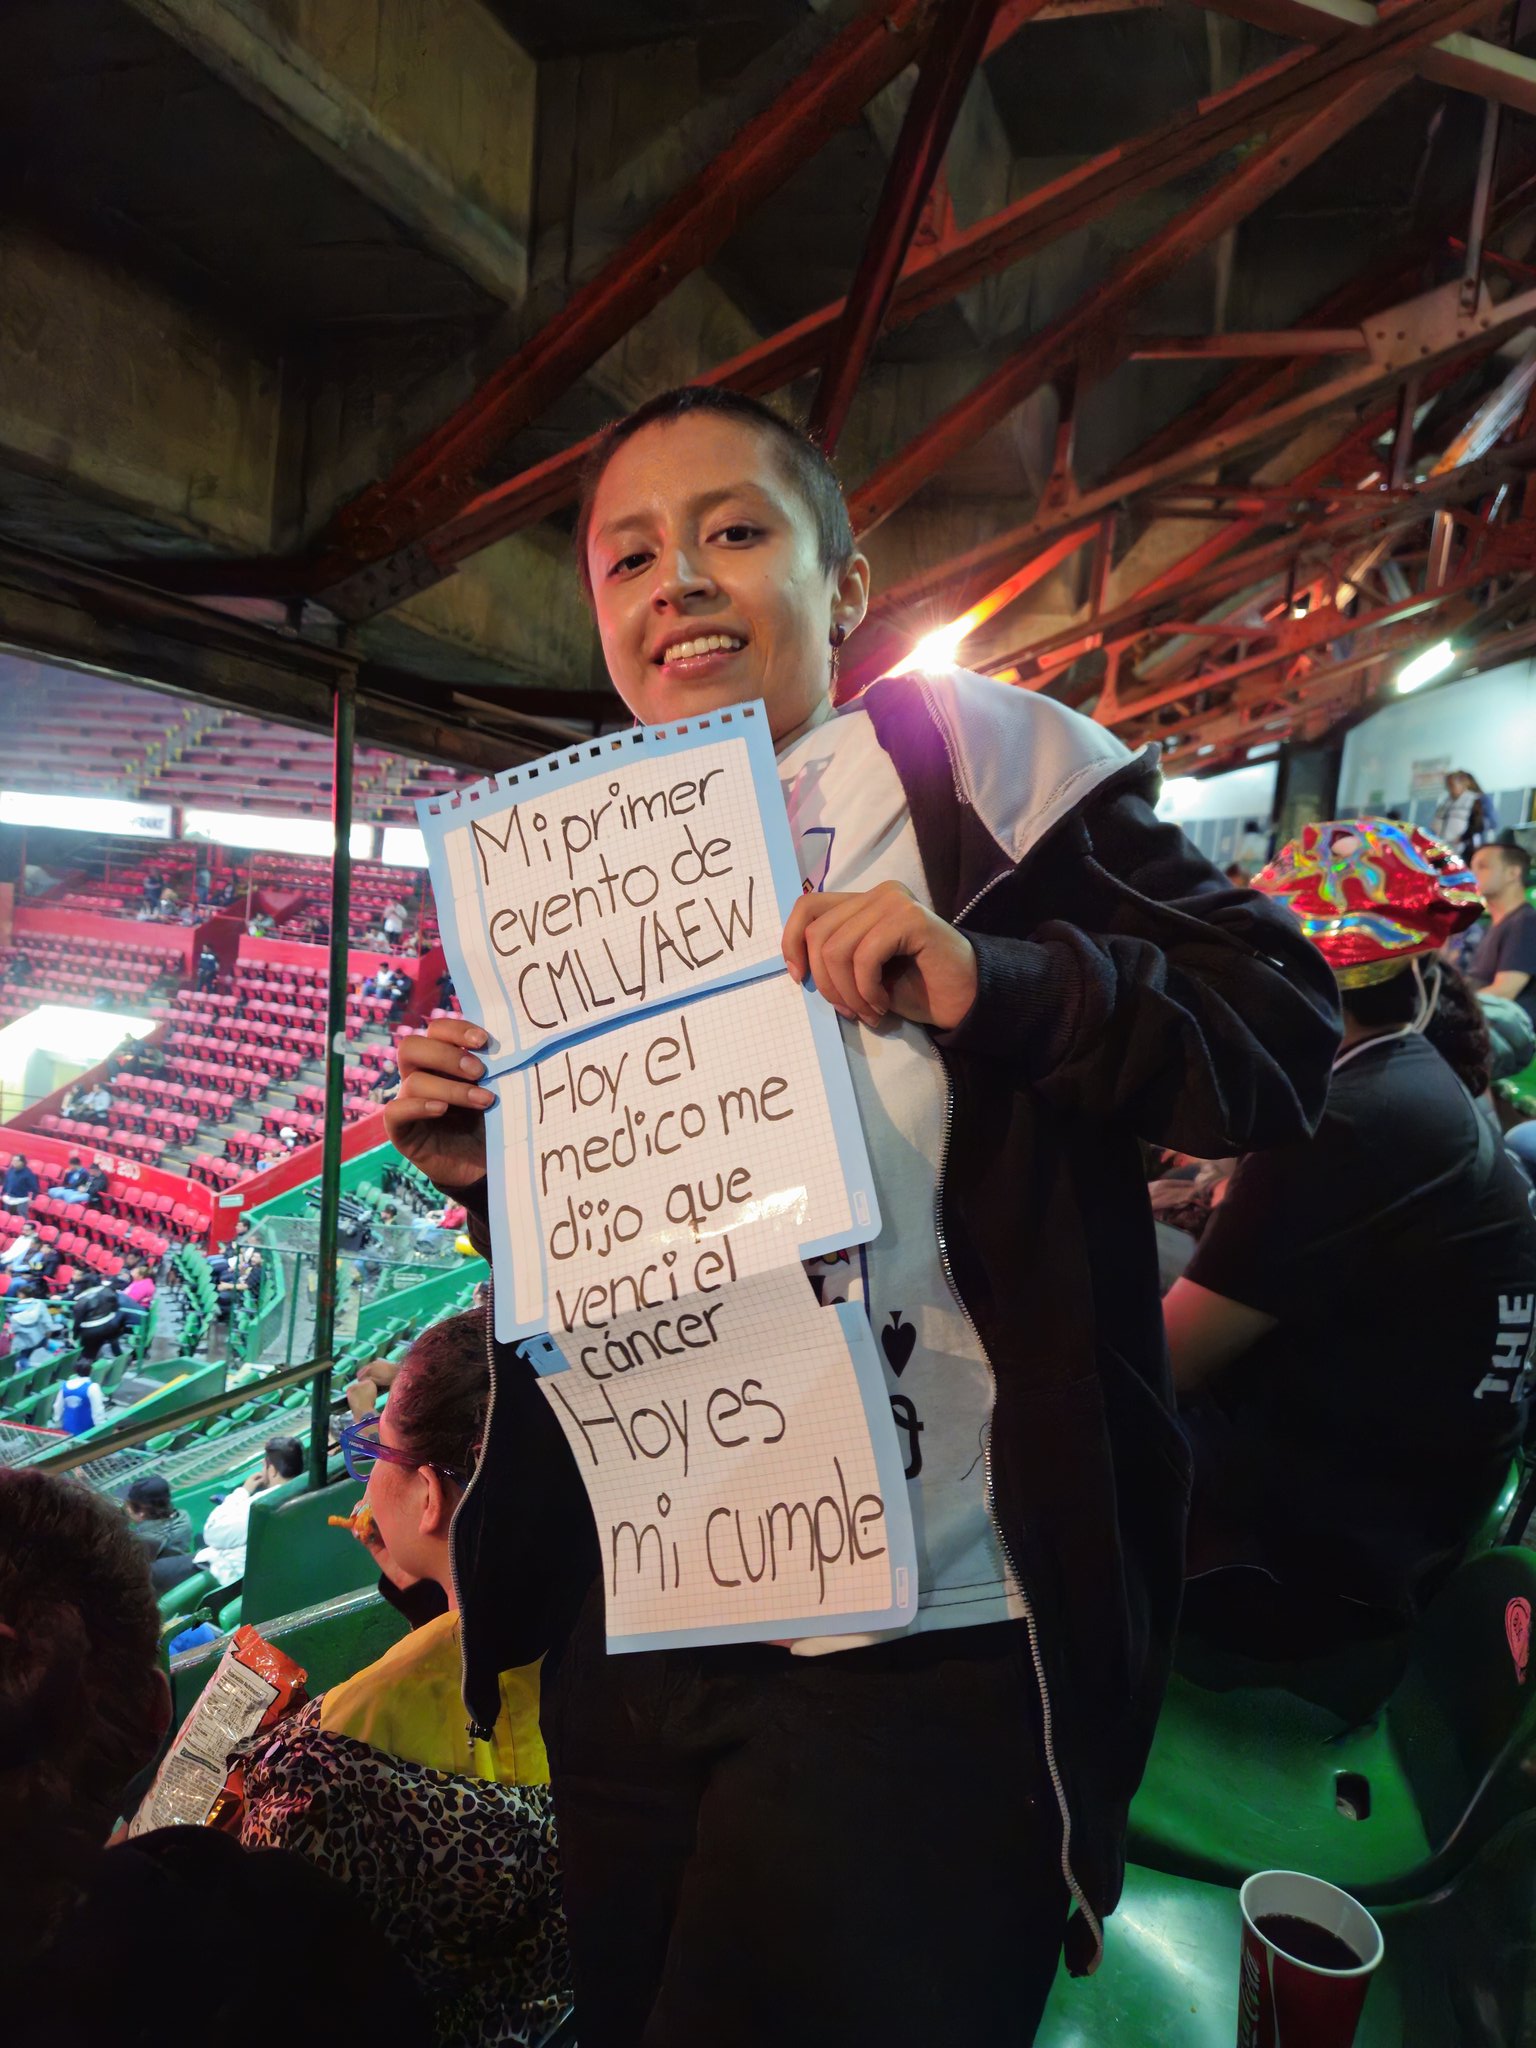 Mi primer
evento de
CMLL/AEW
Hoy el
medico me
dijo que
venci el
cáncer
Hoy es
mi cumple
THE